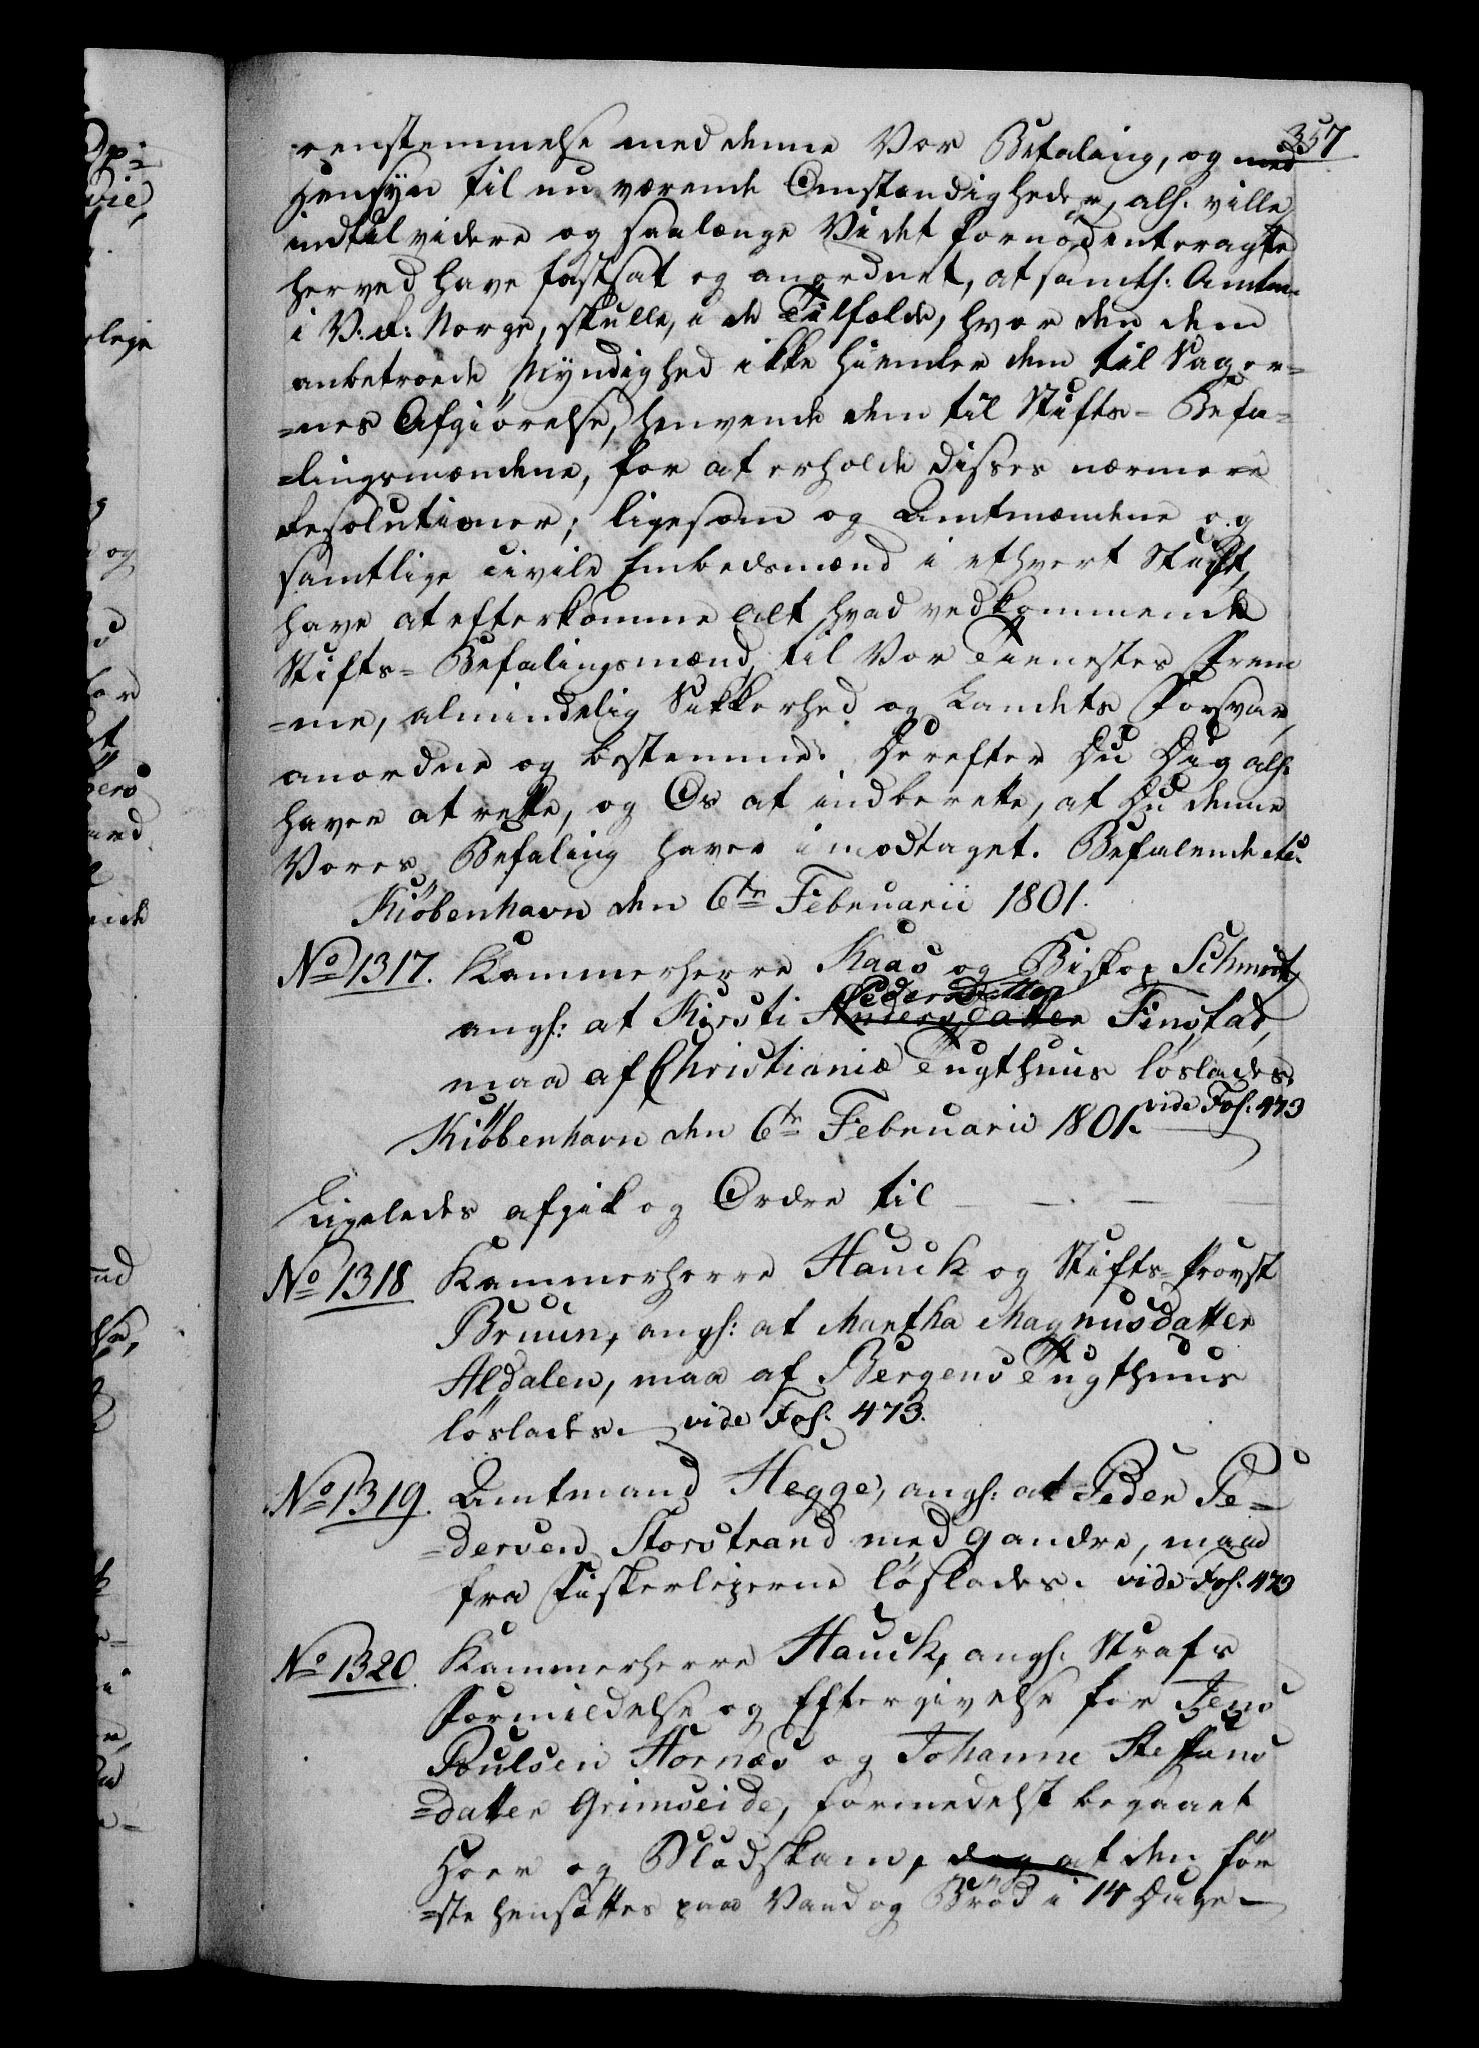 357
renstemmelse med denne Vor Befaling, og med
Hensyn til nu værende Omstændigheder, alh. ville
indtil videre og saalænge Vi det fornödent eragte
herved have fastsat og anordnet, at samtl: Amtm.
i V: R: Norge, skulle, i de Tilfælde, hvor den dem
anbetroede Myndighed ikke hiemler dem til Sager=
=nes Afgiörelse, henvende dem til Stifts- Befa=
=lingsmændene, for at erholde disses nærmere
Resolutioner; ligesom og Amtmændene og
samtlige civile Embedsmænd i ethvert Stift,
have at efterkomme alt hvad vedkommende
Stifts= Befalingsmænd, til Vor Tienestes Frem
=me, almindelig Sikkerhed og Landets Forsvar,
anordne og bestemme. Derefter Du Dig alh.
haver at rette, og Os at indberette, at Du denne
Vores Befaling haver imodtaget. Befalende etc.
Kiöbenhavn den 6te Februarii 1801.
No 1317. Kammerherre Kaas og Biskop Schmidt,
Pedersdatter
angl: at Kirsti Andersdatter Finstad,
maa af Christianiæ Tugthuus löslades.
Kiöbenhavn den 6te Februarii 1801. vide Fol: 473
Ligeledes afgik og Ordre til
No 1318 Kammerherre Hauch og Stifts-Provst
Bruun, angl: at Martha Magnusdatter
Aldalen, maa af Bergens Tugthuus
löslades. vide Fol: 473.
No 1319. Amtmand Hegge, angl: at Peder Pe=
=dersen Storstrand med 9 andre, maae
fra Fiskerleierne löslades. vide Fol: 473
No 1320. Kammerherre Hauch, angl. Strafs
Formildelse og Eftergivelse for Jens
Poulsen Hornæs og Johanne Steffens
=datter Grimseide, formedelst begaaet
Hoer og Blodskam, dog at den för
=ste hensættes paa Vand og Bröd i 14 Dage